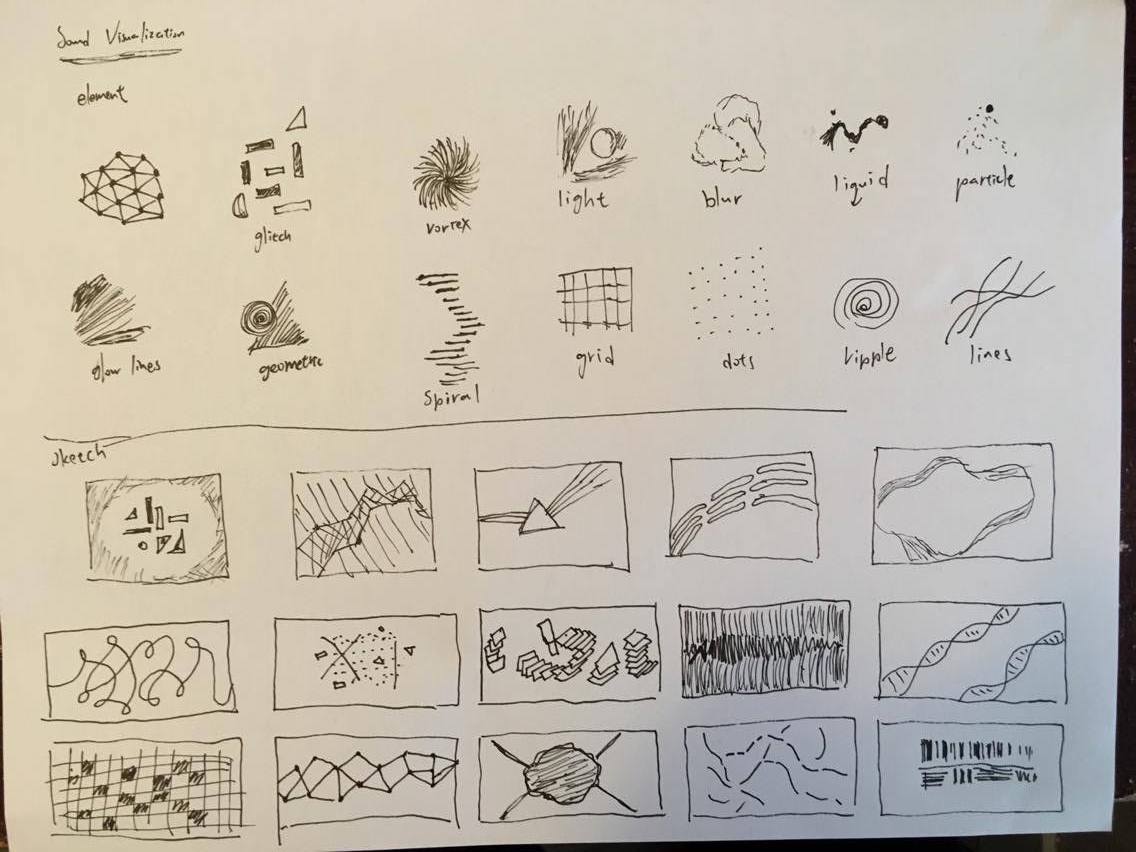 Sound Visualization
element
glitch
vortex
light
blur
liquid
particle
glow lines
geometric
Spiral
grid
dots
ripple
lines
sketch